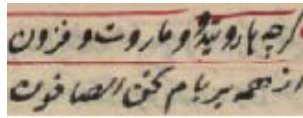 گرچه هاروتید و ماروت و فزون
از همه بر بام نحن الصافون